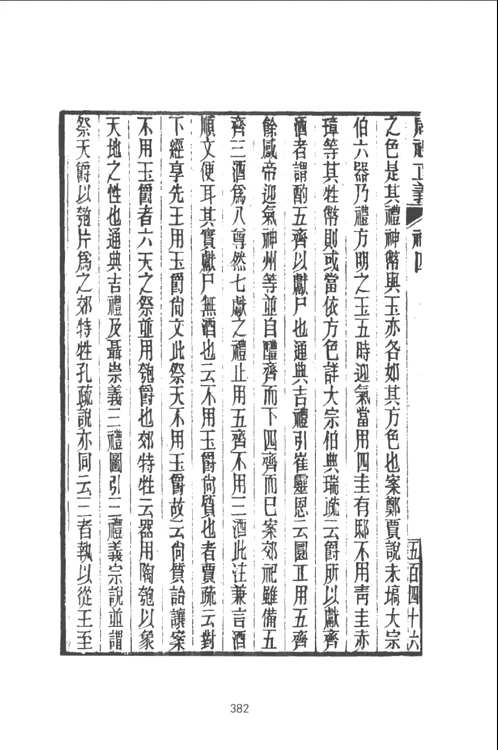 周禮正義 補四 五百四十六
之色是其禮神幣與玉亦各如其方色也案鄭賈說未塙大宗
伯六器乃禮方明之玉五時迎氣當用四圭有邸不用靑圭赤
璋等其牲幣則或當依方色詳大宗伯典瑞疏云爵所以獻齊
酒者謂酌五齊以獻尸也通典吉禮引崔靈恩云圜丘用五齊
餘感帝迎氣神州等並自醴齊而下四齊而已案郊祀雖備五
齊三酒爲八尊然七獻之禮止用五齊不用三酒此注兼言酒
順文便耳其實獻尸無酒也云不用玉爵尙質也者賈疏云對
下經享先王用玉爵尙文此祭天不用玉爵故云尙質詒讓案
不用玉爵者六天之祭並用匏爵也郊特牲云器用陶匏以象
天地之性也通典吉禮及聶崇義三禮圖引三禮義宗說並謂
祭天爵以匏片爲之郊特牲孔疏說亦同云三者執以從王至
382